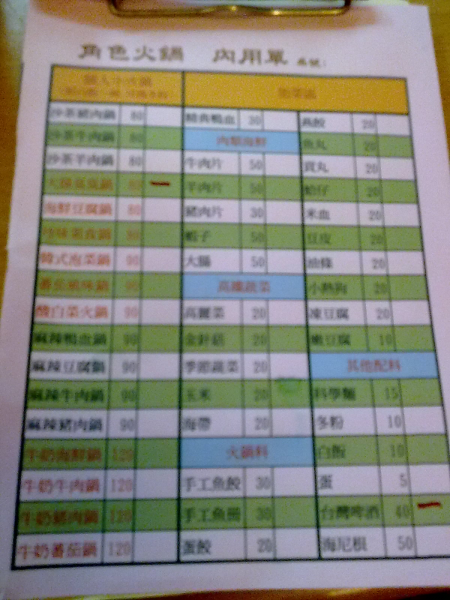 角色火鍋 內用單
沙茶豬肉鍋 80
沙茶牛肉鍋 80
沙茶羊肉鍋 80
80
海鮮豆腐鍋 80
90
韓式泡菜鍋 90
番茄風味鍋 90
酸白菜火鍋 90
麻辣鴨血鍋 90
麻辣豆腐鍋 90
麻辣牛肉鍋 90
麻辣豬肉鍋 90
牛奶海鮮鍋 120
牛奶牛肉鍋 120
牛奶豬肉鍋 120
牛奶番茄鍋 120
鴨血 30
肉類海鮮
牛肉片 50
羊肉片 50
豬肉片 30
蝦子 50
大腸 50
高纖蔬菜
高麗菜 20
金針菇 20
季節蔬菜 20
玉米 20
海帶 20
火鍋料
手工魚餃 30
手工魚冊 30
蛋餃 20
燕餃 20
魚丸 20
貢丸 20
蛤仔 20
米血 20
豆皮 20
油條 20
小熱狗 20
凍豆腐 20
嫩豆腐 10
其他配料
科學麵 15
冬粉 10
白飯 10
蛋 5
台灣啤酒 40
海尼根 50